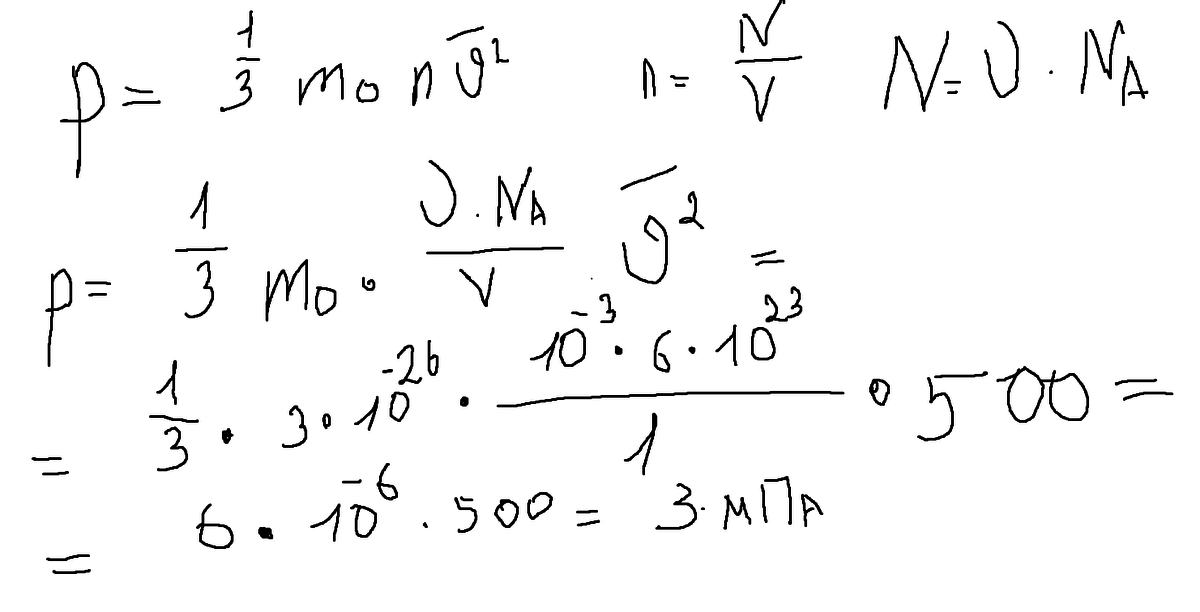 p = 1/3 m₀ n v̄² n = N/V N = ν · N_A
p = 1/3 m₀ · ν · N_A / V · v̄² =
= 1/3 · 3 · 10⁻²⁶ · 10⁻³ · 6 · 10²³ / 1 · 500 =
= 6 · 10⁻⁶ · 500 = 3 · мПА